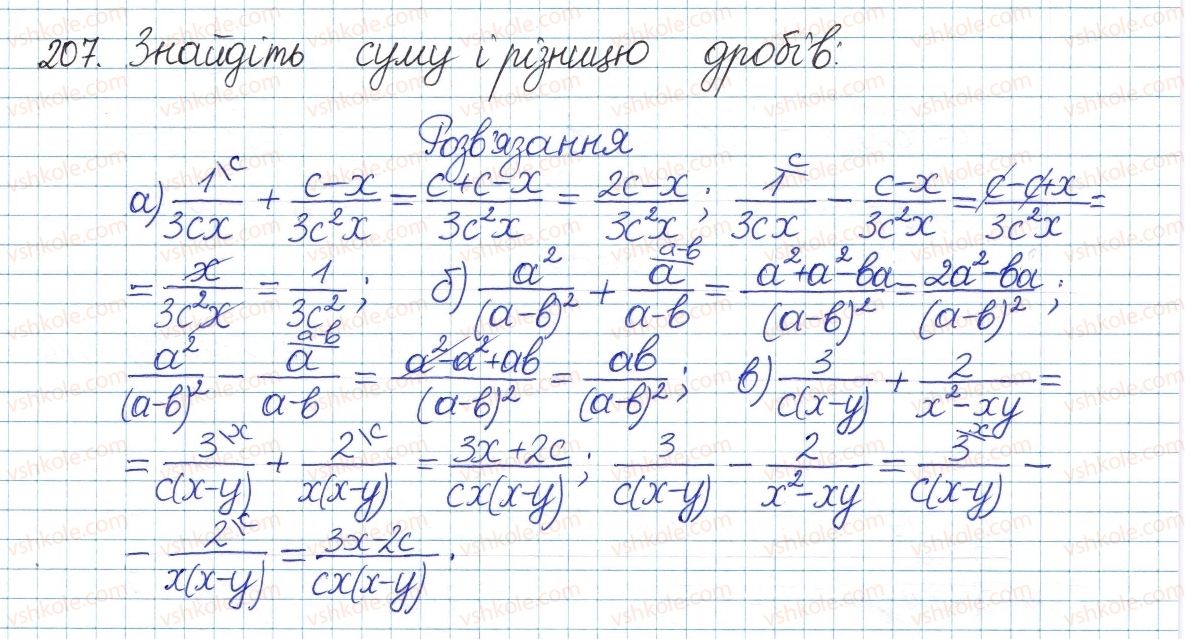 207. Знайдіть суму і різницю дробів:
Розв'язання
а) 1\c/3cx + c-x/3c²x = c+c-x/3c²x = 2c-x/3c²x; 1\c/3cx - c-x/3c²x = c-c+x/3c²x =
= x/3c²x = 1/3c²; б) a²/(a-b)² + a\a-b/a-b = a²+a²-ba/(a-b)² = 2a²-ba/(a-b)²;
a²/(a-b)² - a\a-b/a-b = a²-a²+ab/(a-b)² = ab/(a-b)²; в) 3/c(x-y) + 2/x²-xy =
= 3\x/c(x-y) + 2\c/x(x-y) = 3x+2c/cx(x-y); 3/c(x-y) - 2/x²-xy = 3\x/c(x-y) -
- 2\c/x(x-y) = 3x-2c/cx(x-y).
vshkole.com